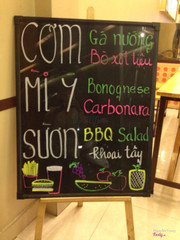 CƠM Gà nướng
Bò xốt tiêu
MÌ Ý Bonognese
Carbonara
SƯỜN BBQ Salad
khoai tây